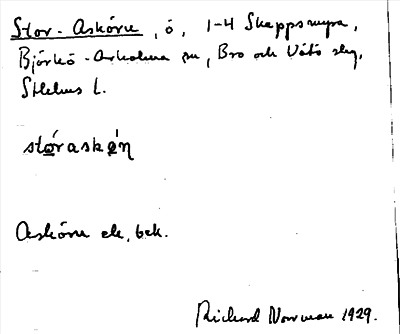 Stor-Askören, ö, 1-4 Skeppsmyra,
Björkö-Arholma sn, Bro och Vätö slg,
Sthlms l.
stóraskö́n
Askören ek, bek.
Richard Norrman 1929.